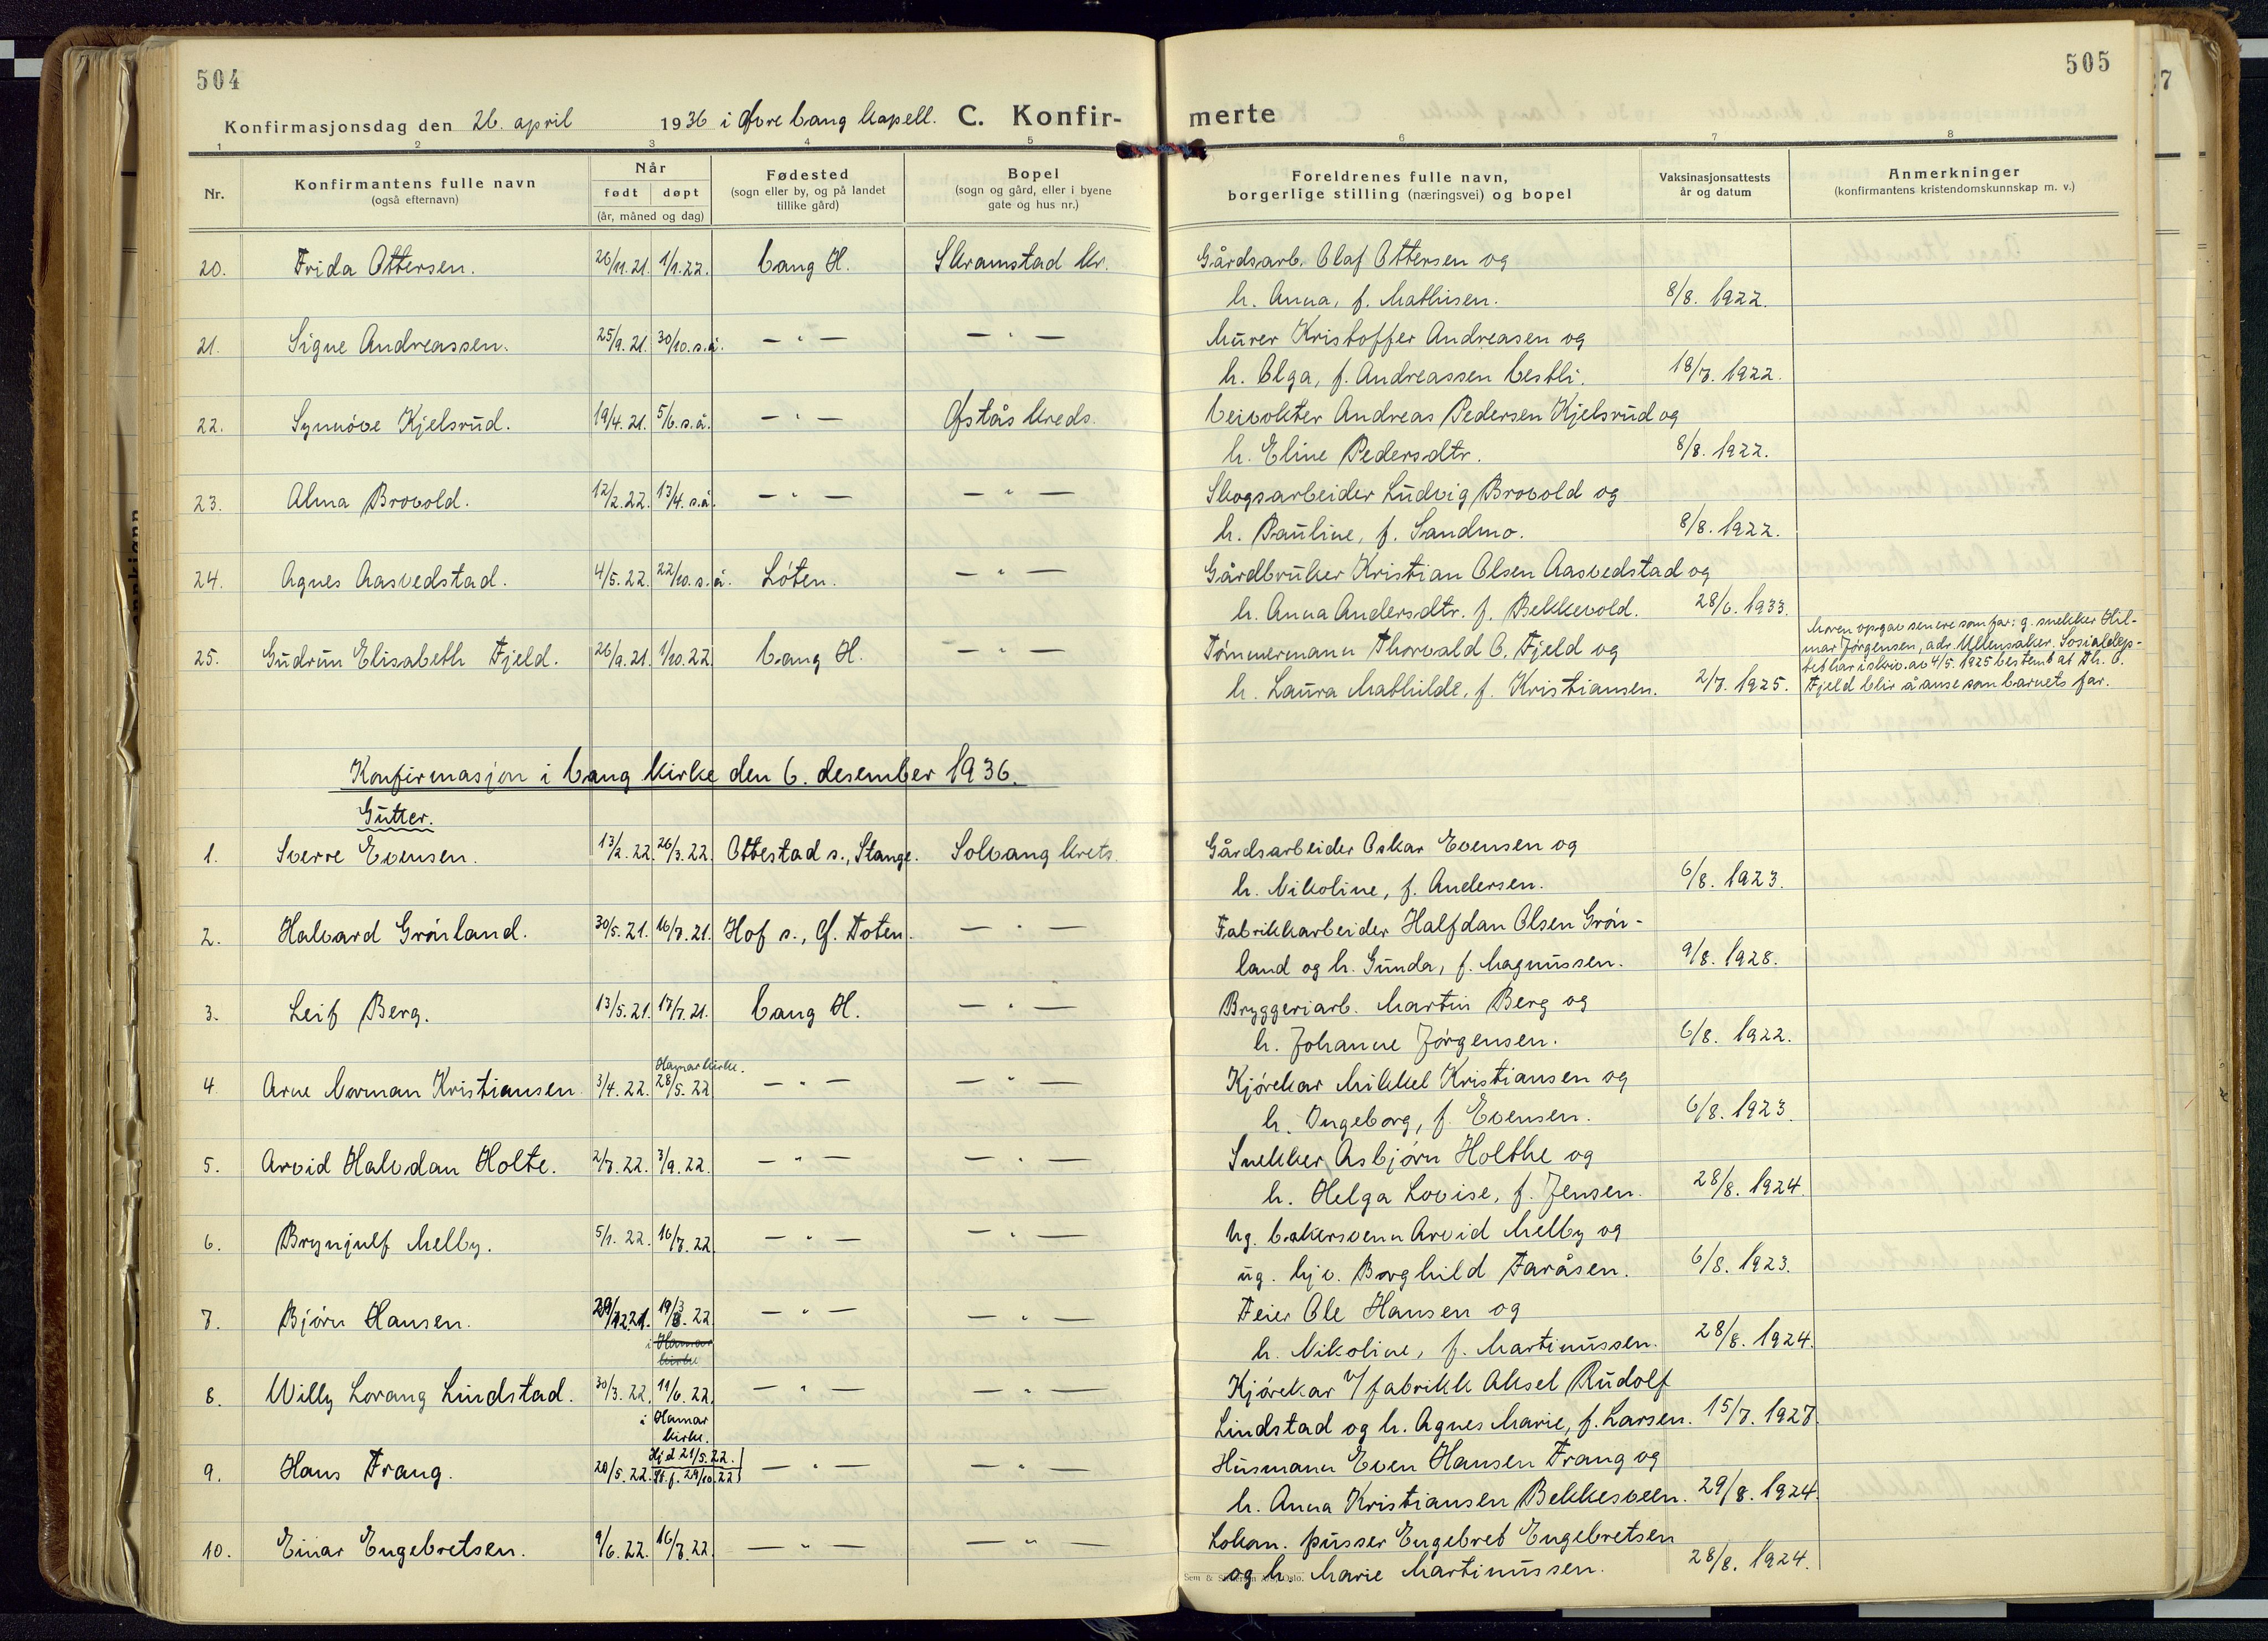 504
505
Konfirmasjonsdag den 26. april 1936 i Øvre Vang kapell. C. Konfir-
merte
1 2 3 4 5 6 7 8
Nr. Konfirmantens fulle navn (også efternavn) Når født døpt (år, måned og dag) Fødested (sogn eller by, og på landet tillike gård) Bopel (sogn og gård, eller i byene gate og hus nr.) Foreldrenes fulle navn, borgerlige stilling (næringsvei) og bopel Vaksinasjonsattests år og datum Anmerkninger (konfirmantens kristendomskunnskap m. v.)
20. Frida Ottersen. 26/11.21. 1/1.22. Vang H. Skramstad kr. Gårdsarb. Olaf Ottersen og
h. Anna, f. Mathisen. 8/8. 1922.
21. Signe Andreassen. 25/9.21. 30/10. s.å. — " — — " — Murer Kristoffer Andreasen og
h. Olga, f. Andreassen Vestli. 18/7. 1922.
22. Synnöve Kjelsrud. 19/4.21. 5/6. s.å. — " — Ofstås kreds. Veivokter Andreas Pedersen Kjelsrud og
h. Eline Pedersdtr. 8/8. 1922.
23. Alma Brovold. 12/2.22. 13/4. s.å. — " — — " — Skogsarbeider Ludvig Brovold og
h. Pauline, f. Sandmo. 8/8. 1922.
24. Agnes Aasvedstad. 4/5.22. 22/10. s.å. Löten. — " — Gårdbruker Kristian Olsen Aasvedstad og
h. Anna Andersdtr. f. Bekkevold. 28/6. 1933.
25. Gudrun Elisabeth Fjeld. 26/9.21. 1/10.22. Vang H. — " — Tömmermann Thorvald O. Fjeld og
h. Laura Mathilde, f. Kristiansen. 2/7. 1925.
Moren opgav senere som far: g. snekker Hil-
mar Jörgensen, adr. Ullensaker. Sosialdep-
tet har i skriv. av 4/5. 1925 bestemt at Th. O.
Fjeld blir å anse som barnets far.
Konfirmasjon i Vang kirke den 6. desember 1936.
Gutter.
1. Sverre Evensen. 13/2.22. 26/3.22. Ottestad s., Stange. Solvang krets. Gårdsarbeider Oskar Evensen og
h. Nikoline, f. Andersen. 6/8. 1923.
2. Halvard Grönland. 30/5.21. 16/7.21. Hof s., Ø. Toten. — " — Fabrikkarbeider Halfdan Olsen Grön-
land og h. Gunda, f. Magnussen. 9/8. 1928.
3. Leif Berg. 13/5.21. 17/7.21. Vang H. — " — Bryggeriarb. Martin Berg og
h. Johanne Jörgensen. 6/8. 1922.
Hamar kirke.
4. Arne Norman Kristiansen. 3/4.22. 28/5.22 — " — — " — Kjörekar Mikkel Kristiansen og
h. Ingeborg, f. Evensen. 6/8. 1923.
5. Arvid Halvdan Holte. 2/7.22. 3/9.22. — " — — " — Snekker Asbjörn Holthe og
h. Helga Lovise, f. Jensen. 28/8. 1924.
6. Brynjulf Melby. 5/1.22. 16/7.22. — " — — " — Ug. bakersvenn Arvid Melby og
ug. hjv. Borghild Faråsen. 6/8. 1923.
7. Björn Hansen. 29/12.21. 19/3.22. — " — — " — Feier Ole Hansen og
i Hamar kirke h. Nikoline, f. Martinussen. 28/8. 1924.
8. Willy Lorang Lindstad. 30/3.22. 11/6.22. — " — — " — Kjörekar v/ fabrikk Aksel Rudolf
i Hamar kirke. Lindstad og h. Agnes Marie, f. Larsen. 15/7. 1927.
9. Hans Frang. 20/5.22. Hjd 21/5.22. St. f. 29/10.22 — " — — " — Husmann Even Hansen Frang og
h. Anna Kristiansen Bekkesveen. 29/8. 1924.
10. Einar Engebretsen. 9/6.22. 16/7.22. — " — — " — Lokom. pusser Engebret Engebretsen
og h. Marie Martinussen. 28/8. 1924.